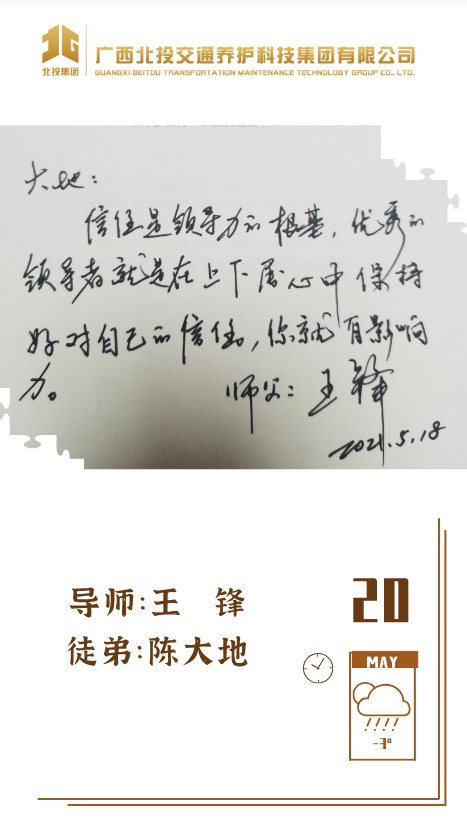 北投集团
广西北投交通养护科技集团有限公司
GUANGXI BEITOU TRANSPORTATION MAINTENANCE TECHNOLOGY GROUP CO., LTD.
大地：
信任是领导力的根基，优秀的
领导者就是在上下层心中保持
好对自己的信任，你就有影响
力。
师父：王锋
2021.5.18
导师:王 锋
徒弟:陈大地
20
MAY
-3°